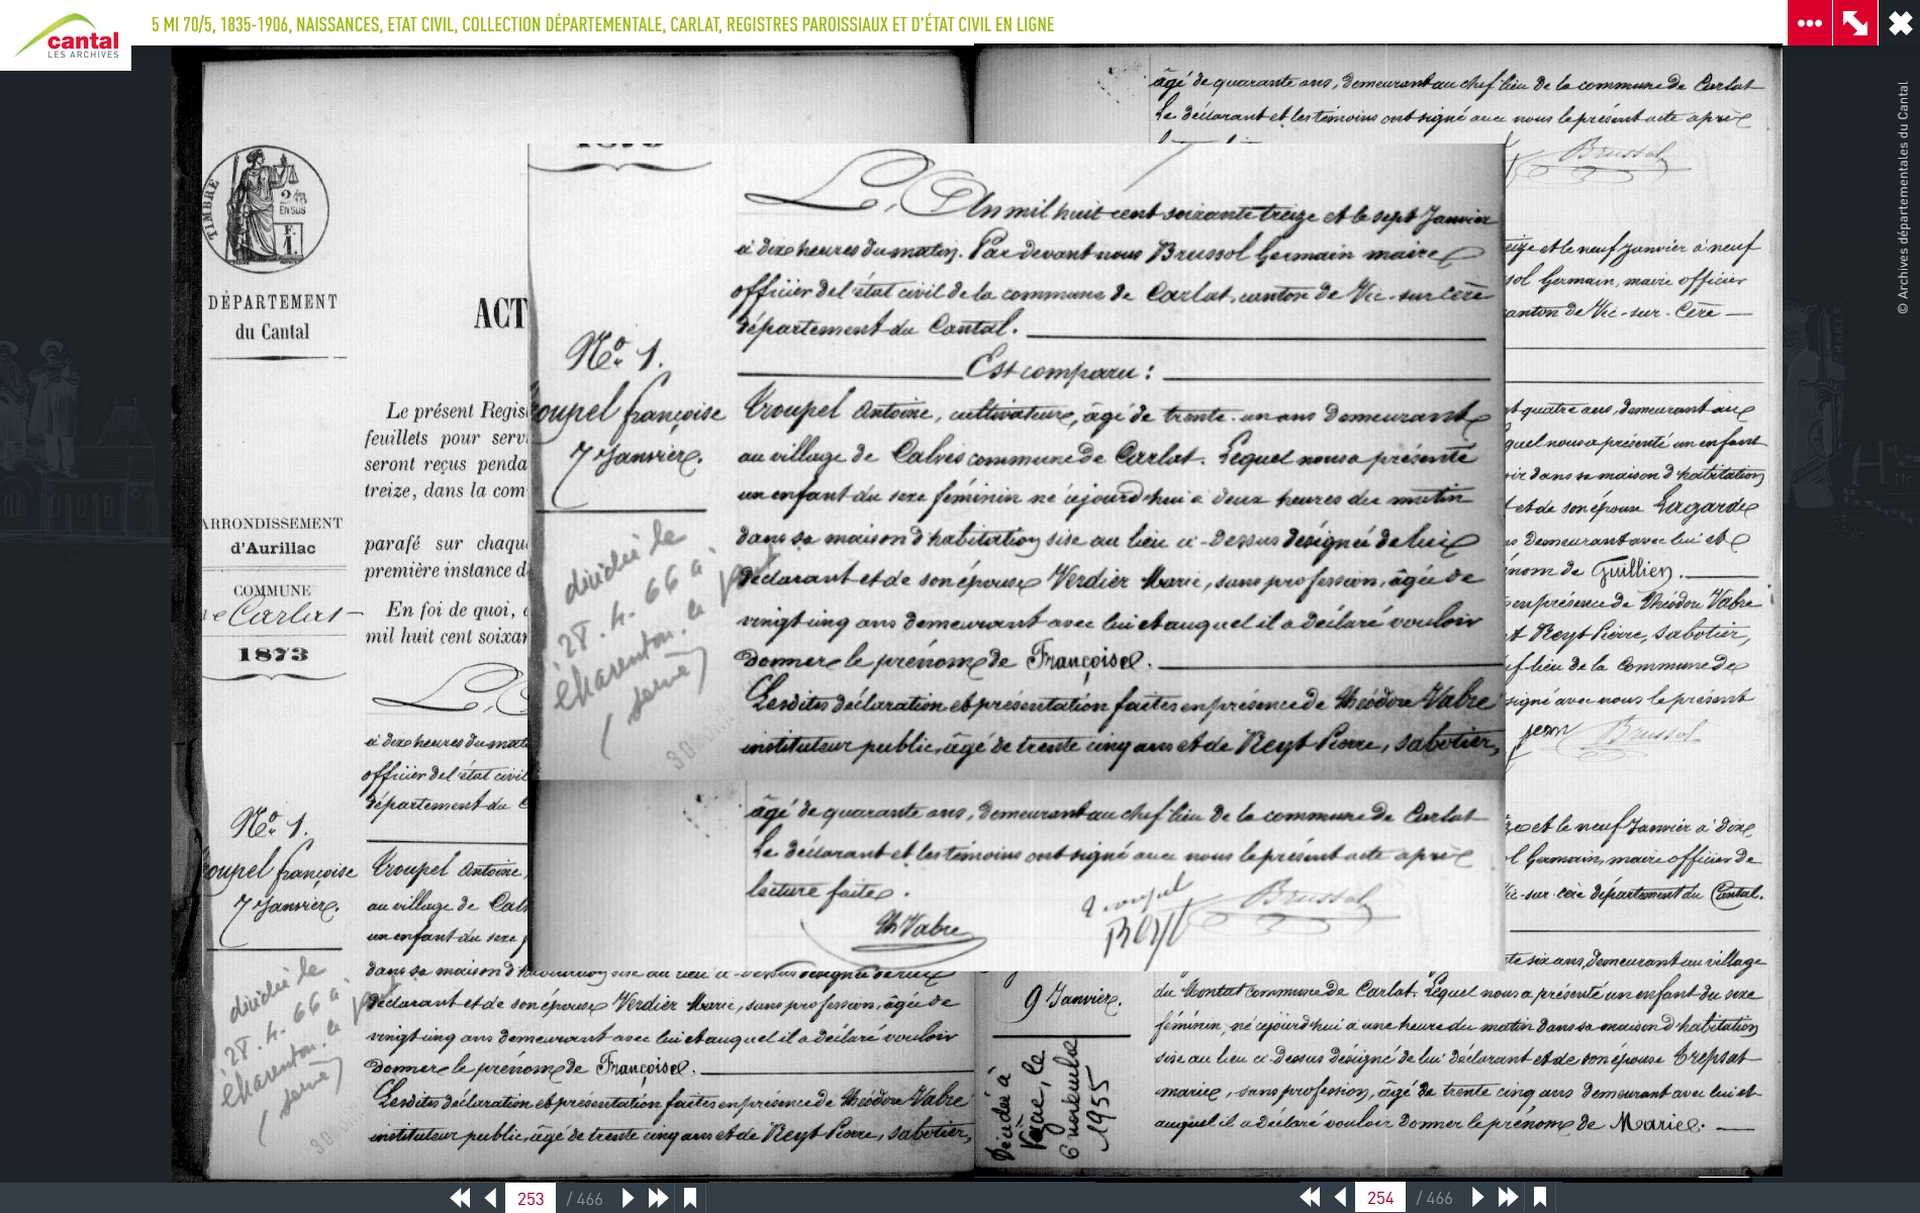 5 MI 70/5, 1835-1906, NAISSANCES, ETAT CIVIL, COLLECTION DÉPARTEMENTALE, CARLAT, REGISTRES PAROISSIAUX ET D'ÉTAT CIVIL EN LIGNE
cantal
LES ARCHIVES
© Archives départementales du Cantal
TIMBRE
2/10
EN SUS
F.
1.
DÉPARTEMENT
du Cantal
ACT
Le présent Regis
feuillets pour serv
seront reçus penda
treize, dans la com
ARRONDISSEMENT
d'Aurillac
parafé sur chaqu
première instance d
COMMUNE
de Carlat
En foi de quoi,
mil huit cent soixan
1873
à dix heures du mat
officier de l'état civil
département du C
No. 1.
oupel françoise
7 Janvier.
Troupel Antoine,
au village de Cal
un enfant du sexe f
décédée le
28.4.66 à
Charenton le pont
(seine)
déclarant et de son épouse Verdier Marie, sans profession, âgée de
vingt cinq ans demeurant avec lui et auquel il a déclaré vouloir
donner le prénom de Françoise.
Lesdites déclaration et présentation faites en présence de Théodore Vabre
instituteur public, âgé de trente cinq ans et de Reyt Pierre, sabotier,
L'An mil huit cent soixante treize et le sept Janvier
à dix heures du matin. Par devant nous Brussol Germain maire
officier de l'état civil de la commune de Carlat, canton de Vic-sur-Cère
département du Cantal.
Est comparu :
No. 1.
oupel françoise
7 Janvier.
Troupel Antoine, cultivateur, âgé de trente-un ans demeurant
au village de Calves commune de Carlat. Lequel nous a présenté
un enfant du sexe féminin né cejourd'hui à deux heures du matin
dans sa maison d'habitation sise au lieu ci-dessus désigné de lui
déclarant et de son épouse Verdier Marie, sans profession, âgée de
vingt cinq ans demeurant avec lui et auquel il a déclaré vouloir
donner le prénom de Françoise.
Lesdites déclaration et présentation faites en présence de Théodore Vabre
instituteur public, âgé de trente cinq ans et de Reyt Pierre, sabotier,
décédée le
28.4.66 à
Charenton le pont
(seine)
âgé de quarante ans, demeurant au chef lieu de la commune de Carlat
Le déclarant et les témoins ont signé avec nous le présent acte après
lecture faite.
Th Vabre
Troupel
Reyt
Brussol
âgé de quarante ans, demeurant au chef lieu de la commune de Carlat
Le déclarant et les témoins ont signé avec nous le présent acte après
Brussol
eize et le neuf Janvier à neuf
sol Germain, maire officier
canton de Vic-sur-Cère
t quatre ans, demeurant au
quel nous a présenté un enfant
oir dans sa maison d'habitation
et de son épouse Lagarde
s demeurant avec lui et
nom de Guillien.
en présence de Théodore Vabre
t Reyt Pierre, sabotier,
ef-lieu de la Commune de
signé avec nous le présent
jean
Brussol
ze et le neuf Janvier à dix
l Germain, maire officier de
Vic-sur-Cère département du Cantal.
te six ans, demeurant au village
9 Janvier.
Décédée à
le
6 novembre
1955
du Montat commune de Carlat. Lequel nous a présenté un enfant du sexe
féminin, né cejourd'hui à une heure du matin dans sa maison d'habitation
sise au lieu ci-dessus désigné de lui déclarant et de son épouse Trepsat
marie, sans profession, âgé de trente cinq ans demeurant avec lui et
auquel il a déclaré vouloir donner le prénom de Marie.
253 / 466
254 / 466